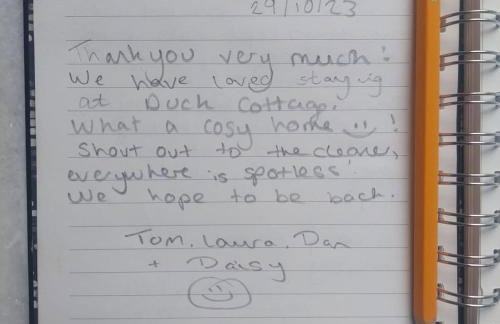 29/10/23
Thank you very much!
We have loved staying
at Duck Cottage.
What a cosy home !
Shout out to the cleaner,
everywhere is spotless!
We hope to be back.
Tom, Laura, Dan
+ Daisy